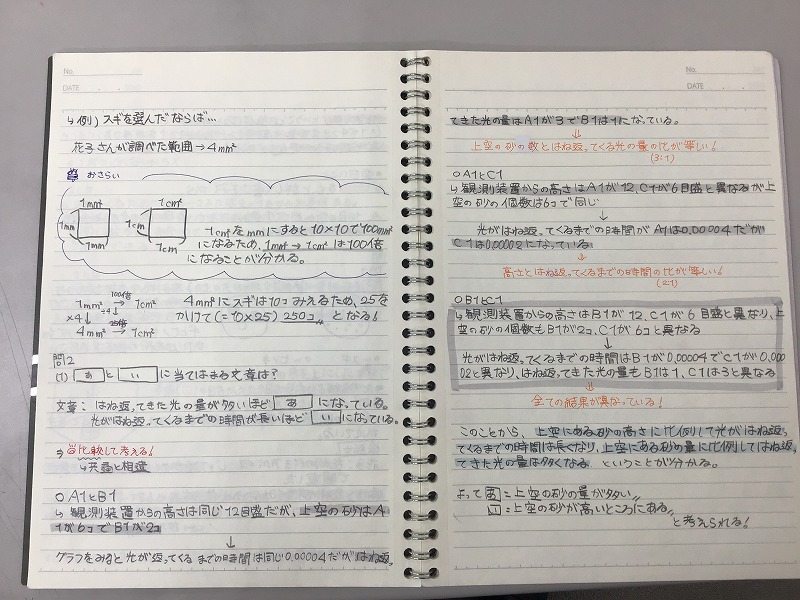 No.
DATE
↳例) スギを選んだならば…
花子さんが調べた範囲→4mm²
おさらい
1mm² 1cm²
1mm 1cm
1mm 1cm
1cm²をmmにすると10×10で100mm²
になるため、1mm²→1cm²は100倍
になることが分かる。
1mm² 100倍→ 1cm²
×4↓ ÷4
4mm² 25倍→ 1cm²
4mm²にスギは10コみえるため、25を
かけて(=10×25) 250コ となる!
問2
(1) あ と い に当てはまる文章は?
文章: はね返ってきた光の量が多いほど あ になっている。
光がはね返ってくるまでの時間が長いほど い になっている。
⇒対比較して考える!
↳共通と相違
○A1とB1
↳観測装置からの高さは同じ12目盛だが、上空の砂はA
1が6コでB1が2コ
↓
グラフをみると光が返ってくるまでの時間は同じ0.00004だがはね返っ
No.
DATE
てきた光の量はA1が3でB1は1になっている。
↓
上空の砂の数とはね返ってくる光の量の比が等しい!
(3:1)
○A1とC1
↳観測装置からの高さはA1が12、C1が6目盛と異なるが上
空の砂の個数は6コで同じ
↓
光がはね返ってくるまでの時間がA1は0.00004だが
C1は0.00002になっている
↓
高さとはね返ってくるまでの時間の比が等しい!
(2:1)
○B1とC1
↳観測装置からの高さはB1が12、C1が6目盛と異なり、上
空の砂の個数もB1が2コ、C1が6コと異なる
↓
光がはね返ってくるまでの時間はB1が0.00004でC1が0.000
02と異なり、はね返ってきた光の量もB1は1、C1は3と異なる
↓
全ての結果が異なっている!
このことから、上空にある砂の高さに比例して光がはね返っ
てくるまでの時間は長くなり、上空にある砂の量に比例してはね返っ
てきた光の量は多くなる ということが分かる。
よって あ=上空の砂の量がタタい
い=上空の砂が高いところにある
と考えられる!